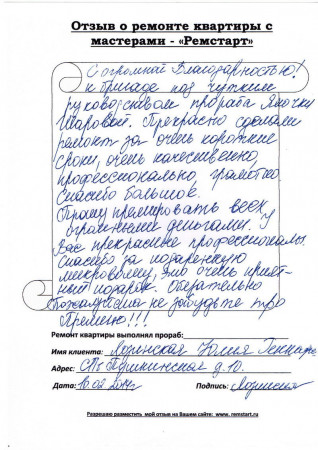 Отзыв о ремонте квартиры с
мастерами - «Ремстарт»
С огромной Благодарностью!
к бригаде под чутким
руководством прораба
Шаровой. Прекрасно сделали
ремонт за очень короткие
сроки, очень качественно,
профессионально, грамотно
Спасибо большое.
Прошу премировать всех
огромными деньгами. У
Вас прекрасные профессионалы.
Спасибо за подаренную
микроволну, это очень прият-
ный подарок. Обязательно
Пожалуйста не забудьте про
Премию!!!
Ремонт квартиры выполнял прораб:
Имя клиента: Юлия
Адрес: СПб Пушкинская д. 10.
Дата: Подпись:
Разрешаю разместить мой отзыв на Вашем сайте: www.remstart.ru